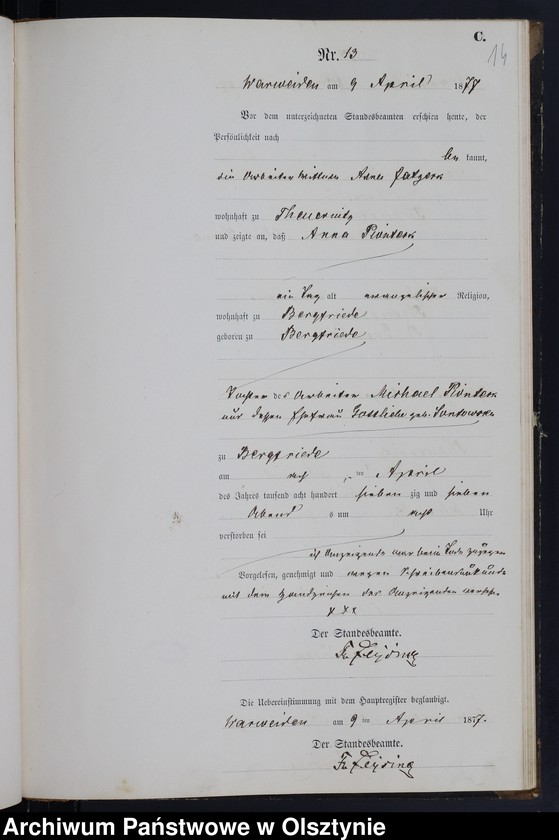 C.
14
Nr. 13
Warweiden am 9 April 1877
Vor dem unterzeichneten Standesbeamten erschien heute, der
Persönlichkeit nach
be kannt,
die Arbeiter Wittwe Anna
wohnhaft zu Theuernitz
und zeigte an, daß Anna Pionteck
ein Tag alt evangelischer Religion,
wohnhaft zu Bergfriede
geboren zu Bergfriede
Tochter des Arbeiter Michael Pionteck
und dessen Ehefrau Gottliebe geb.
zu Bergfriede
am acht ten April
des Jahres tausend acht hundert sieben zig und sieben
Abend s um acht Uhr
verstorben sei
die Anzeigende war beim Tode zugegen
Vorgelesen, genehmigt und wegen Schreibensunkunde
mit dem Handzeichen der Anzeigenden versehen
x x x
Der Standesbeamte.
Die Uebereinstimmung mit dem Hauptregister beglaubigt.
Warweiden am 9 ten April 1877.
Der Standesbeamte.
Archiwum Państwowe w Olsztynie